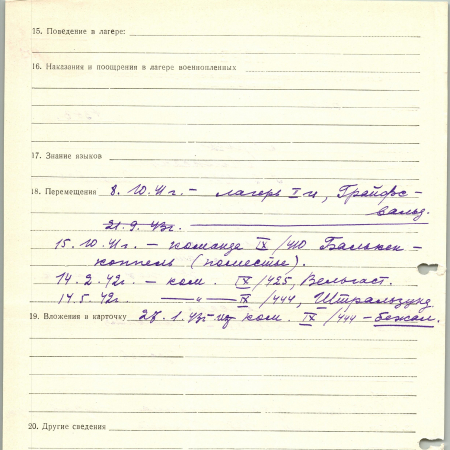 15. Поведение в лагере:
16. Наказания и поощрения в лагере военнопленных
17. Знание языков
18. Перемещения 8. 10. 41 г. – лагерь II ц, Грайфс-
вальд.
21. 9. 43г.
15. 10. 41 г. – команде IX/410 Балькен-
коппель (поместье).
14. 2. 42г. – ком. IX/425, Вольгаст.
14. 5. 42г. —"— IX/444, Штральзунд
19. Вложения в карточку 27. 1. 43г из ком. IX/444 – бежал.
20. Другие сведения